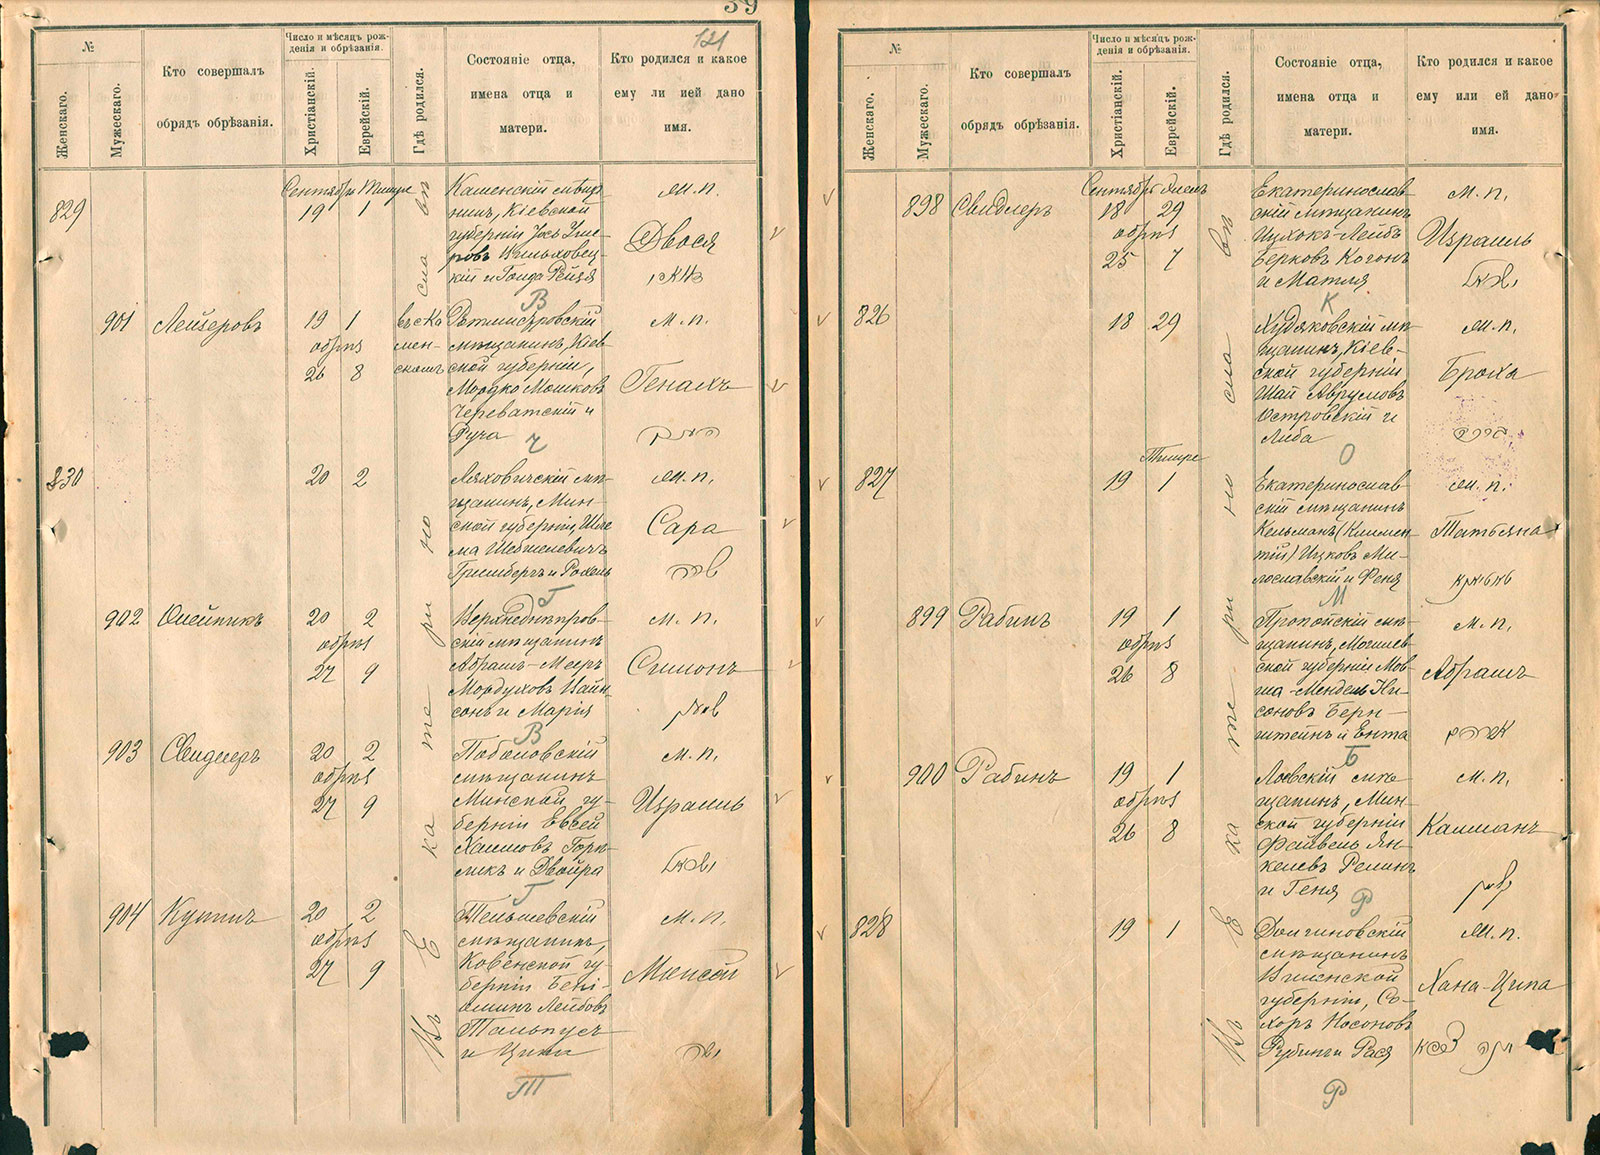 39
121
№
Женскаго.
Мужескаго.
Кто совершалъ
обрядъ обрѣзанія.
Число и мѣсяцъ рож-
денія и обрѣзанія.
Христіанскій.
Еврейскій.
Гдѣ родился.
Состояніе отца,
имена отца и
матери.
Кто родился и какое
ему ли ией дано
имя.
829
Сентябрь Тишре
19 1
Каменскій мѣща
нинъ, Кіевской
губерніи
кій и Рейзя
м. п.
Двося
В
901 Лейзеровъ
19 1
обрѣз
26 8
мен-
скомъ
мѣщанинъ, Кіев-
ской губерніи,
Мордко Мошковъ
Череватскій и
Руча
м. п.
Генахъ
Ч
830
20 2
Ляховичскій мѣ-
щанинъ, Мин-
ской губерніи, Шле
ма
Гринбергъ и Рохель
м. п.
Сара
שרה
Г
902 Олейникъ
20 2
обрѣз
27 9
Верхнеднѣпров-
скій мѣщанинъ
Абрамъ-Мееръ
Мордуховъ Вайн-
сонъ и Марія
м. п.
Симонъ
В
903 Свидлеръ
20 2
обрѣз
27 9
Поболовскій
мѣщанинъ
Минской гу-
берніи Евсей
Хаимовъ Горе-
ликъ и Двойра
м. п.
Израиль
ישראל
Г
904
20 2
обрѣз
27 9
Тельшевскій
мѣщанинъ,
Ковенской гу-
берніи Бені-
аминъ Лейбовъ
м. п.
Т
Въ Екатеринославѣ
№
Женскаго.
Мужескаго.
Кто совершалъ
обрядъ обрѣзанія.
Число и мѣсяцъ рож-
денія и обрѣзанія.
Христіанскій.
Еврейскій.
Гдѣ родился.
Состояніе отца,
имена отца и
матери.
Кто родился и какое
ему или ей дано
имя.
898 Свидлеръ
Сентябрь Элелъ
18 29
обрѣз
25 7
Екатеринослав-
скій мѣщанинъ
Ицхокъ-Лейбъ
Берковъ Коганъ
и Матля
м. п.
Израиль
ישראל
К
826
18 29
Ходяковскій мѣ-
щанинъ, Кіев-
ской губерніи
Шай Аврумовъ
Островскій и
Либа
м. п.
Броха
ברכה
О
827
Тишре
19 1
Екатеринослав-
скій мѣщанинъ
Кельманъ (Климен-
тій) Ицковъ Ми-
лославскій и Феня
м. п.
Татьяна
М
899 Рабинъ
19 1
обрѣз
26 8
Пропойскій мѣ-
щанинъ, Могилев-
ской губерніи Мов-
ша-Мендель Ни-
соновъ Берн-
штейнъ и Ента
м. п.
Абрамъ
Б
900 Рабинъ
19 1
обрѣз
26 8
Лоевскій мѣ-
щанинъ, Мин-
ской губерніи
Файвель Ян-
келевъ Релинъ
и Геня
м. п.
Калманъ
Р
828
19 1
Долгиновскій
мѣщанинъ
Виленской
губерніи, Со-
хоръ Носоновъ
Рубинъ и Рася
м. п.
Хана-Ципа
Р
Въ Екатеринославѣ